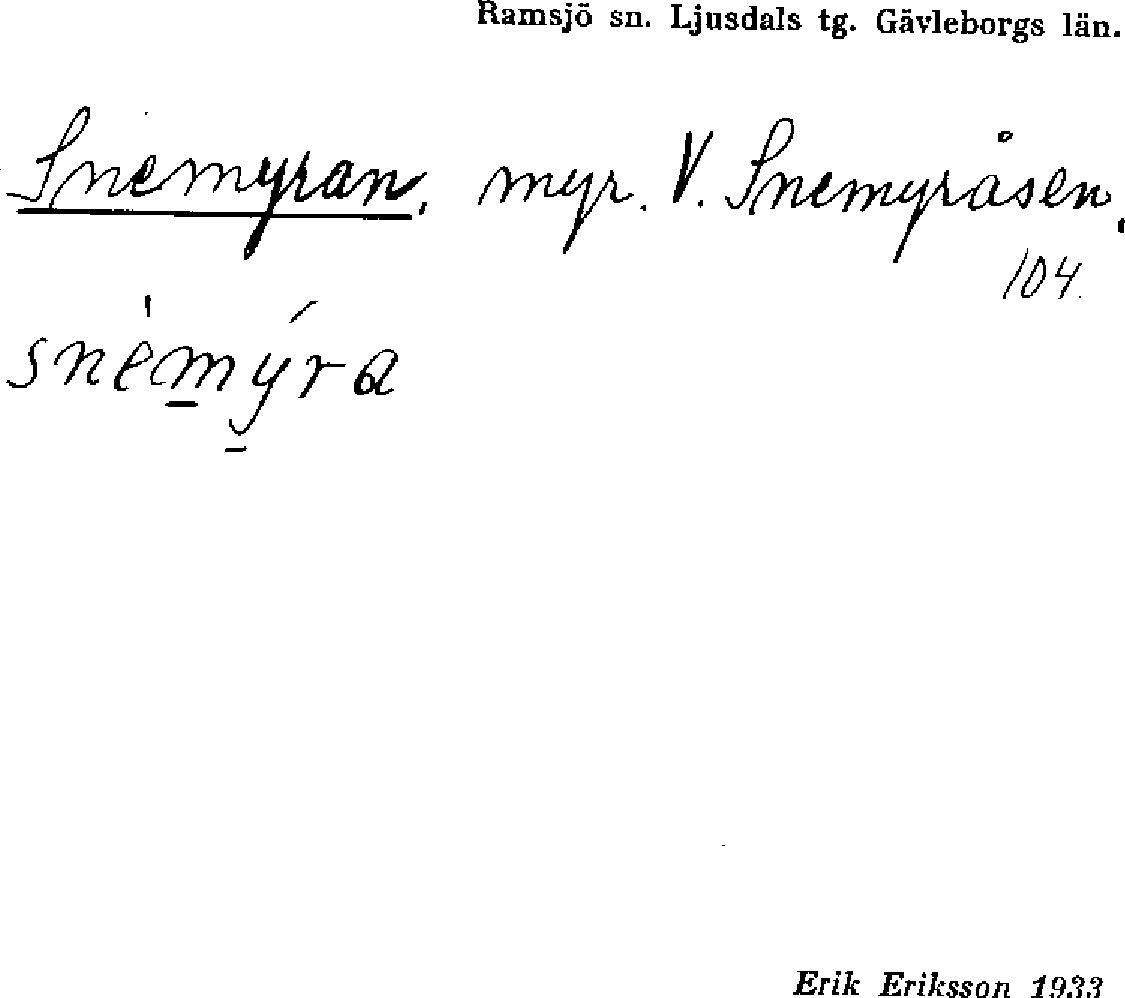 Ramsjö sn. Ljusdals tg. Gävleborgs län.
Snemyran, myr. V. Snemyråsen,
104.
snemýra
Erik Eriksson 1933